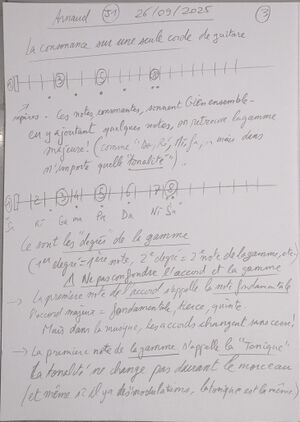 Arnaud 51 26/09/2025 3
La consonance sur une seule corde de guitare
0 3 5 8
repères - Ces notes, consonantes, sonnent bien ensemble -
en y ajoutant quelques notes, on retrouve la gamme
majeure! (comme "Do, Ré, Mi, Fa, ... mais dans
n'importe quelle "tonalité").
2 3 4 5 6 7 8
Sa Ri Ga ma Pa Da Ni Sa
Ce sont les "degrés" de la gamme
(1er degré = 1ère note, 2e degré = 2e note de la gamme, etc)
⚠ Ne pas confondre l'accord et la gamme
→ La première note de l'accord s'appelle la note fondamentale
l'accord majeur = fondamentale, tierce, quinte.
Mais dans la musique, les accords changent sans cesse!
→ La première note de la gamme s'appelle la "Tonique"
La tonalité ne change pas durant le morceau
(et même s'il y a des modulations, la tonique est la même)